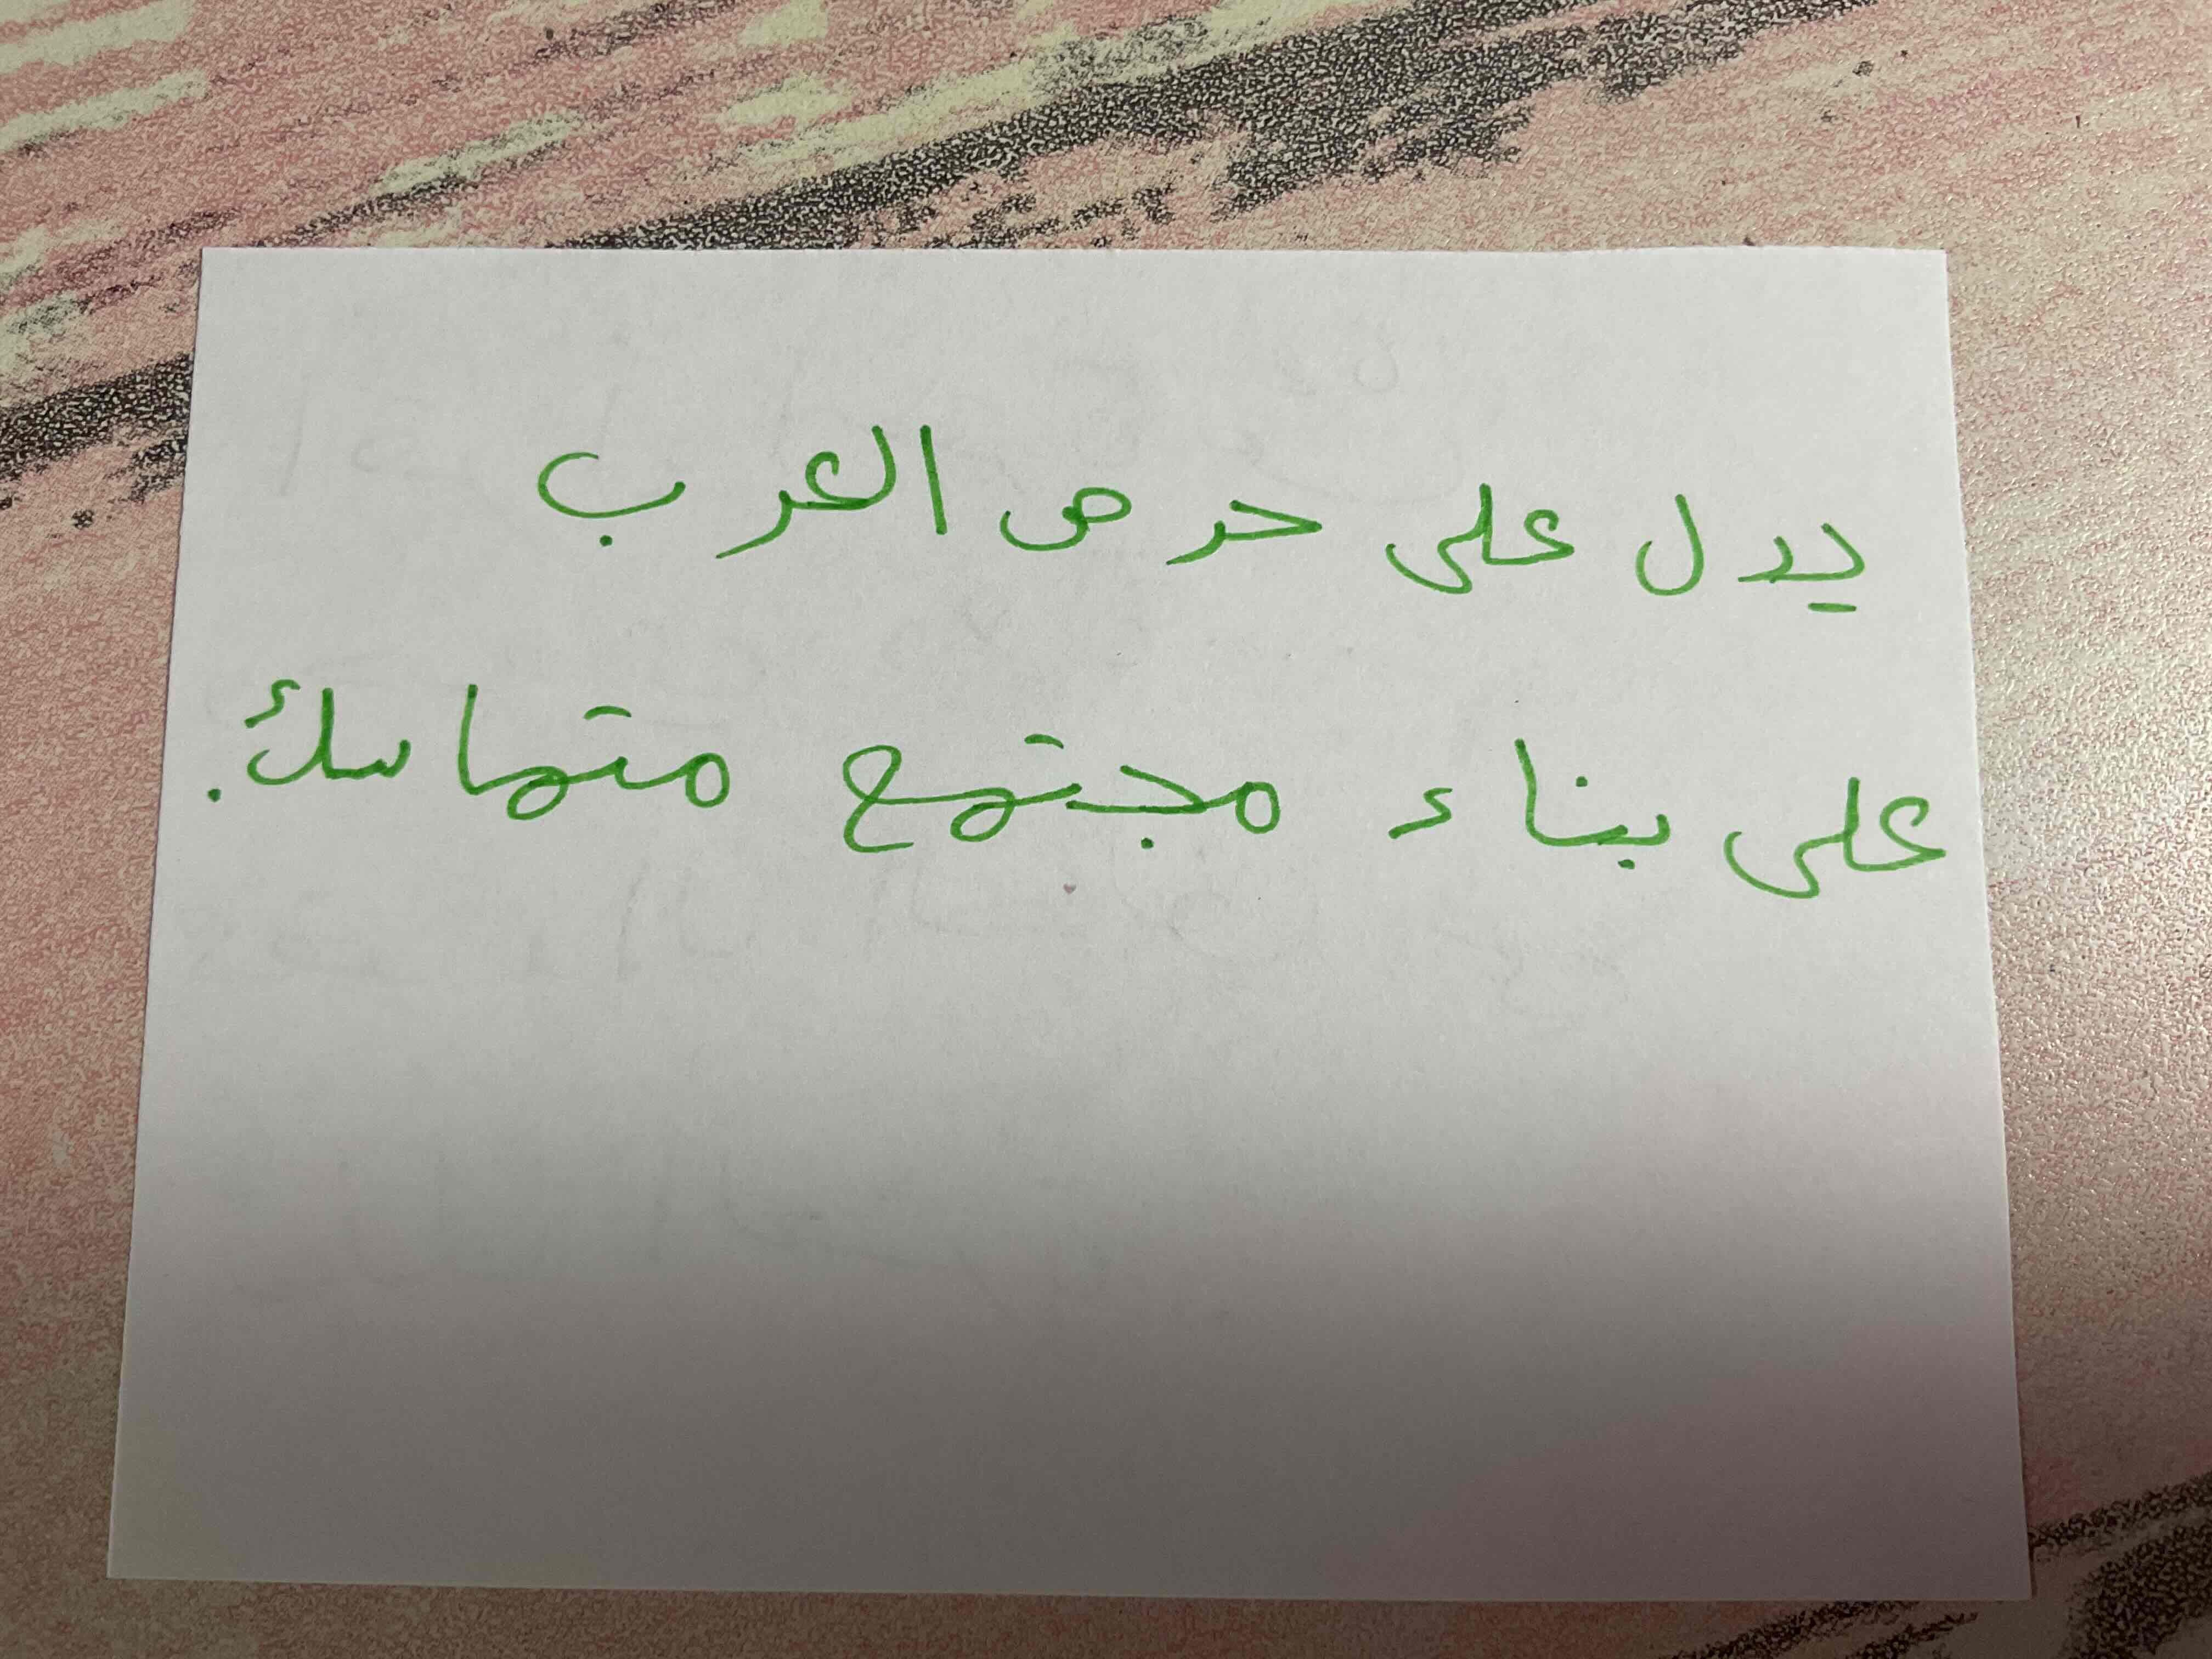 يدل على حرص العرب
على بناء مجتمع متماسك.